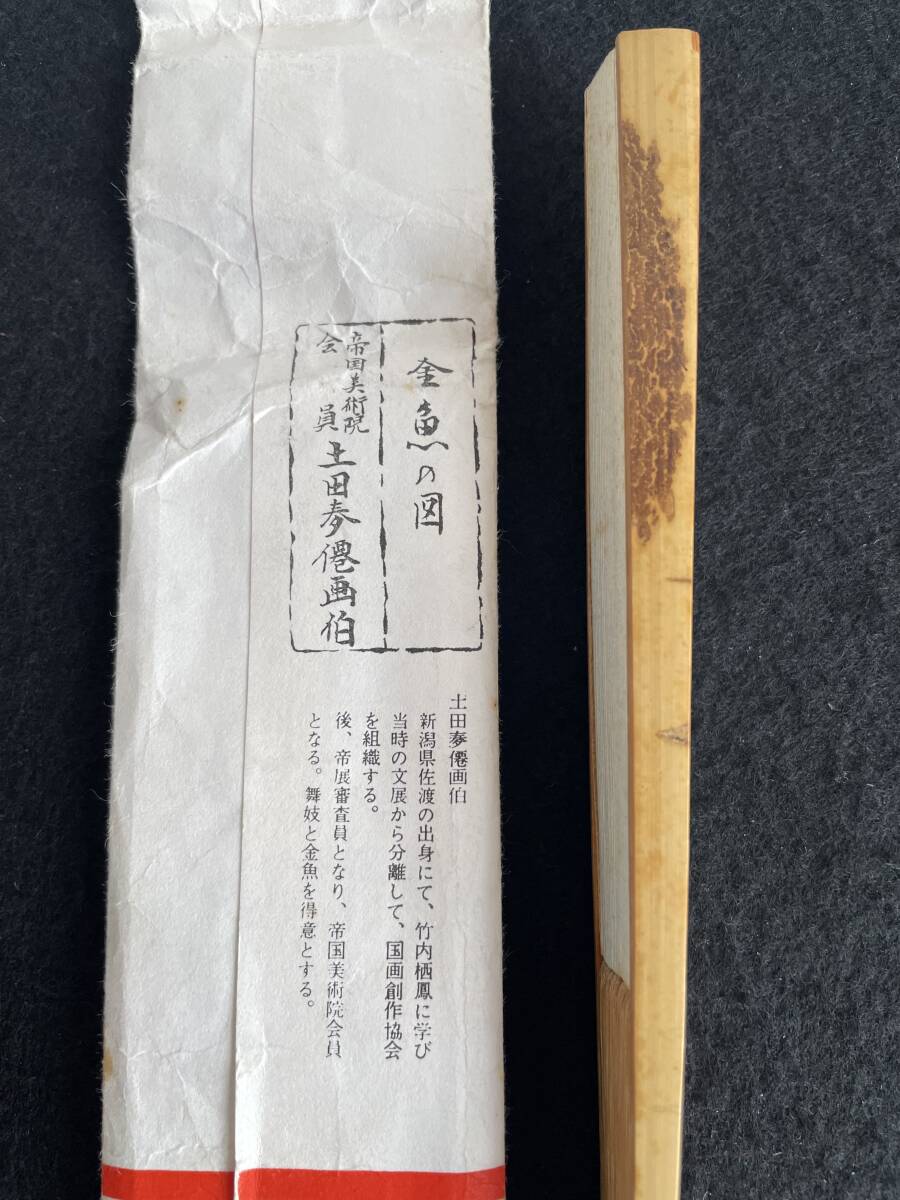 金魚の図
帝国美術院
会員
土田麥僊画伯
土田麥僊画伯
新潟県佐渡の出身にて、竹内栖鳳に学び
当時の文展から分離して、国画創作協会
を組織する。
後、帝展審査員となり、帝国美術院会員
となる。舞妓と金魚を得意とする。